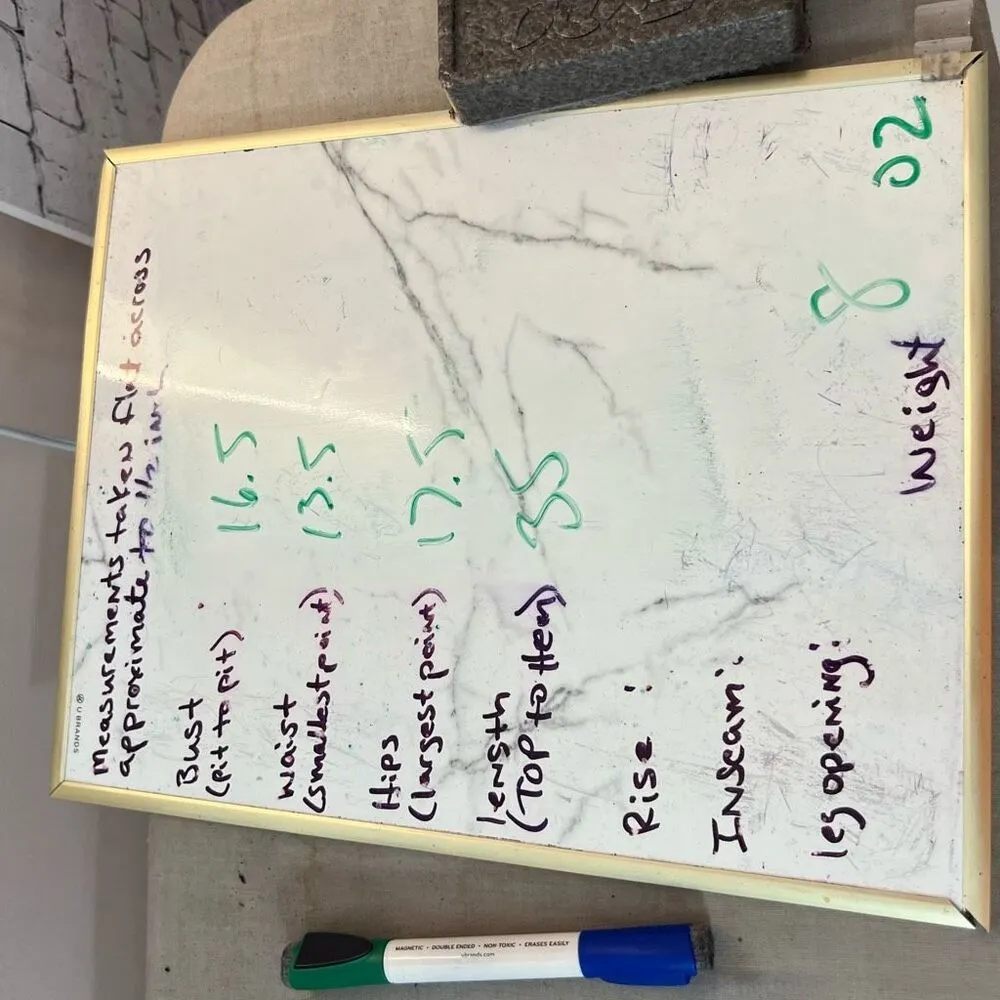 U BRANDS
Measurements taken flat across
approximate to 1/2 inch
Bust
(pit to pit): 16.5
Waist
(smallest point) 13.5
Hips
(largest point) 17.5
length
(Top to Hem) 35
Rise:
Inseam:
leg opening:
Weight 8 oz
MAGNETIC • DOUBLE ENDED • NON-TOXIC • ERASES EASILY
ubrands.com